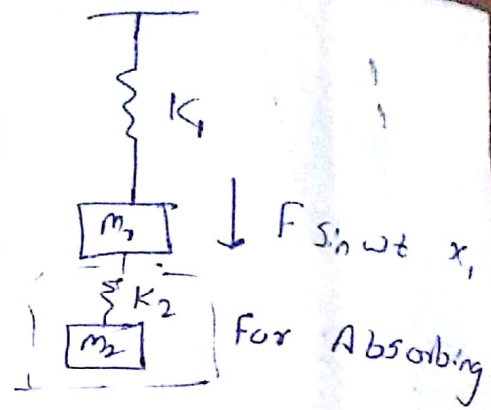 K₁
m₁
F Sin ωt x₁
K₂
m₂
For Absorbing